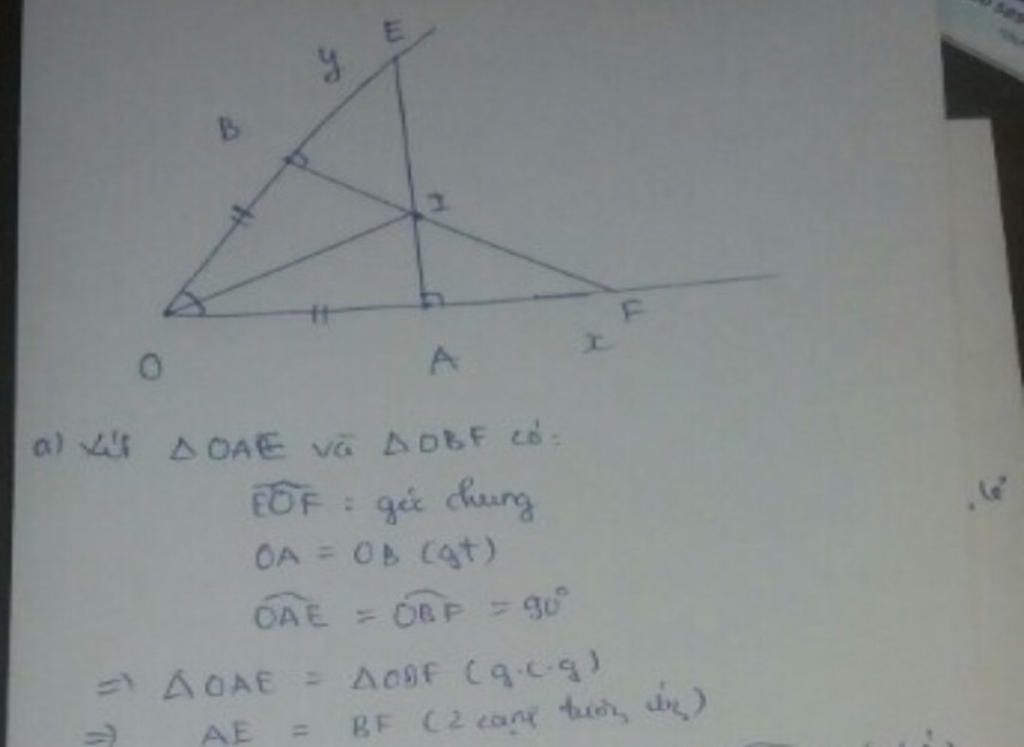 E
y
B
I
O
A
x
F
a) Xét ΔOAE và ΔOBF có:
EOF : góc chung
OA = OB (gt)
OAE = OBF = 90°
=> ΔOAE = ΔOBF (g.c.g)
=> AE = BF (2 cạnh tương ứng)